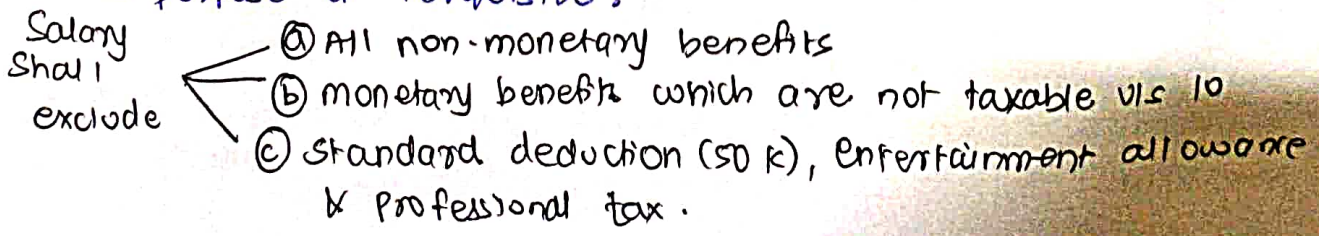 Salary
Shall
exclude
ⓐ All non-monetary benefits
ⓑ monetary benefits which are not taxable u/s 10
ⓒ standard deduction (50 K), entertainment allowance
& professional tax.